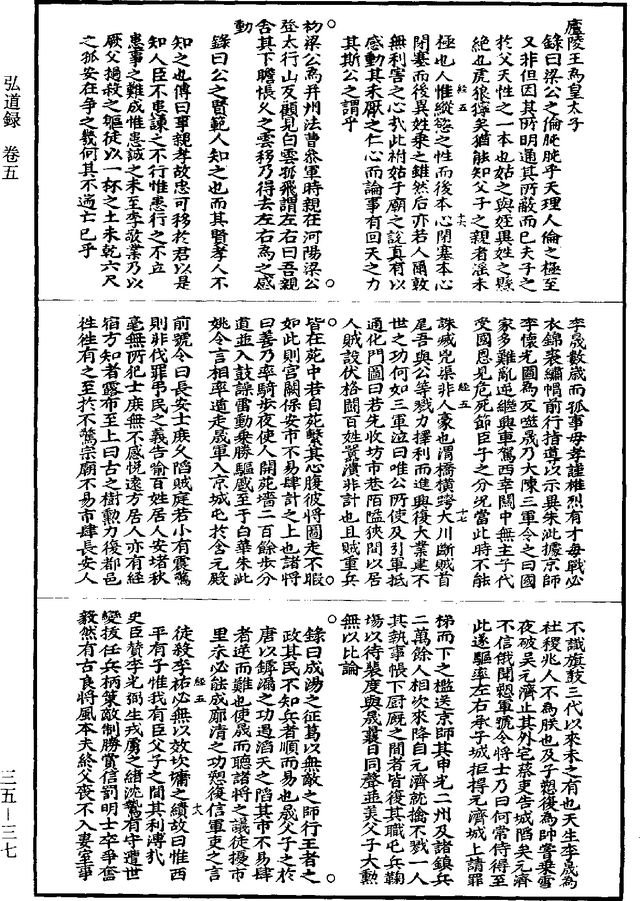 廬陵王為皇太子
錄曰梁公之倫肫肫乎天理人倫之極至
又非但因其所明通其所蔽而已夫子之
於父天性之一本也姑之與姪異姓之縣
絕也虎狼獰矣猶能知父子之親者淫未
極也人惟縱慾之性而後本心閉塞本心
閉塞而後異姓乘之雖然后亦若人爾敦
無利害之心哉此祔姑子廟之說真有以
感動其未厭之仁心而論事有回天之力
其斯公之謂乎
初梁公為并州法曹叅軍時親在河陽梁公
登太行山反顧見白雲孤飛謂左右曰吾親
舍其下瞻悵久之雲移乃得去左右為之感
動
錄曰公之賢範人知之也而其賢孝人不
知之也傳曰事親孝故忠可移於君以是
知人臣不患諫之不行惟患行之不立
患事之難成惟患誠之未至李敬業乃以
厥父撾殺之軀徒以一杯之土未乾六尺
之孤安在爭之幾何其不遄亡已乎
李晟數歲而孤事母孝謹雄烈有才每戰必
衣錦裘繡帽前行指導以示異朱泚據京師
李懷光圖為反噬晟乃大陳三軍令之曰國
家多難亂逆繼興車駕西幸關中無主予代
受國恩見危死節臣子之分況當此時不能
誅滅兇渠非人豪也渭橋橫跨大川斷賊首
尾吾與公等戮力擇利而進興復大業建不
世之功何如三軍泣曰唯公所使及引軍抵
通化門圖曰若先收坊市巷陌隘狹間以居
人賊設伏格鬪百姓囂潰非計也且賊重兵
皆在苑中若自苑擊其心腹彼將圖走不暇
如此則宮闕保安市不易肆計之上也諸將
曰善乃率騎步夜使人開苑墻二百餘步分
道並入鼓譟雷動乘勝驅蹙至于白華朱泚
姚令言相率遁走晟軍入京城屯於含元殿
前號令曰長安士庶久陷賊庭若小有震驚
則非伐罪弔民之義告諭百姓居人安堵秋
毫無所犯士庶無不感悅遠方居人亦有經
宿方知者露布至上曰古之樹勳力復都邑
徃徃有之至於不驚宗廟不易市肆長安人
不識旗鼓三代以來未之有也天生李晟為
社稷兆人不為朕也及子愬後為帥嘗乘雪
夜破吳元濟止其外宅蔡吏告城陷矣元濟
不信俄聞愬軍號令將士乃曰何常侍得至
此遂驅率左右承子城拒捍元濟城上請罪
梯而下之檻送京師其申光二州及諸鎮兵
二萬餘人相次來降自元濟就擒不戮一人
其執事帳下厨廐之間者皆復其職屯兵鞠
場以待裴度與晟曩日同聲並美父子大勲
無以比論
錄曰成湯之征葛以無敵之師行王者之
政其民不知兵者順而易也晟父子之於
唐以鏬漏之功遏滔天之陷其市不易肆
者逆而難也使晟而聽諸將之議徒擾市
里未必能成廓清之功愬復信軍吏之言
徒殺李祐必無以效坎墉之績故曰惟西
平有子惟我有臣父子之間其利溥哉
史臣贊李光弼生戎虜之緒沈鷙有守遭世
變拔任兵柄策敵制勝賞信罰明士卒爭奮
毅然有古良將風本夫終父喪不入妻室事
經五
十六
經五
十七
經五
十八
弘道録 卷五
三五－三七